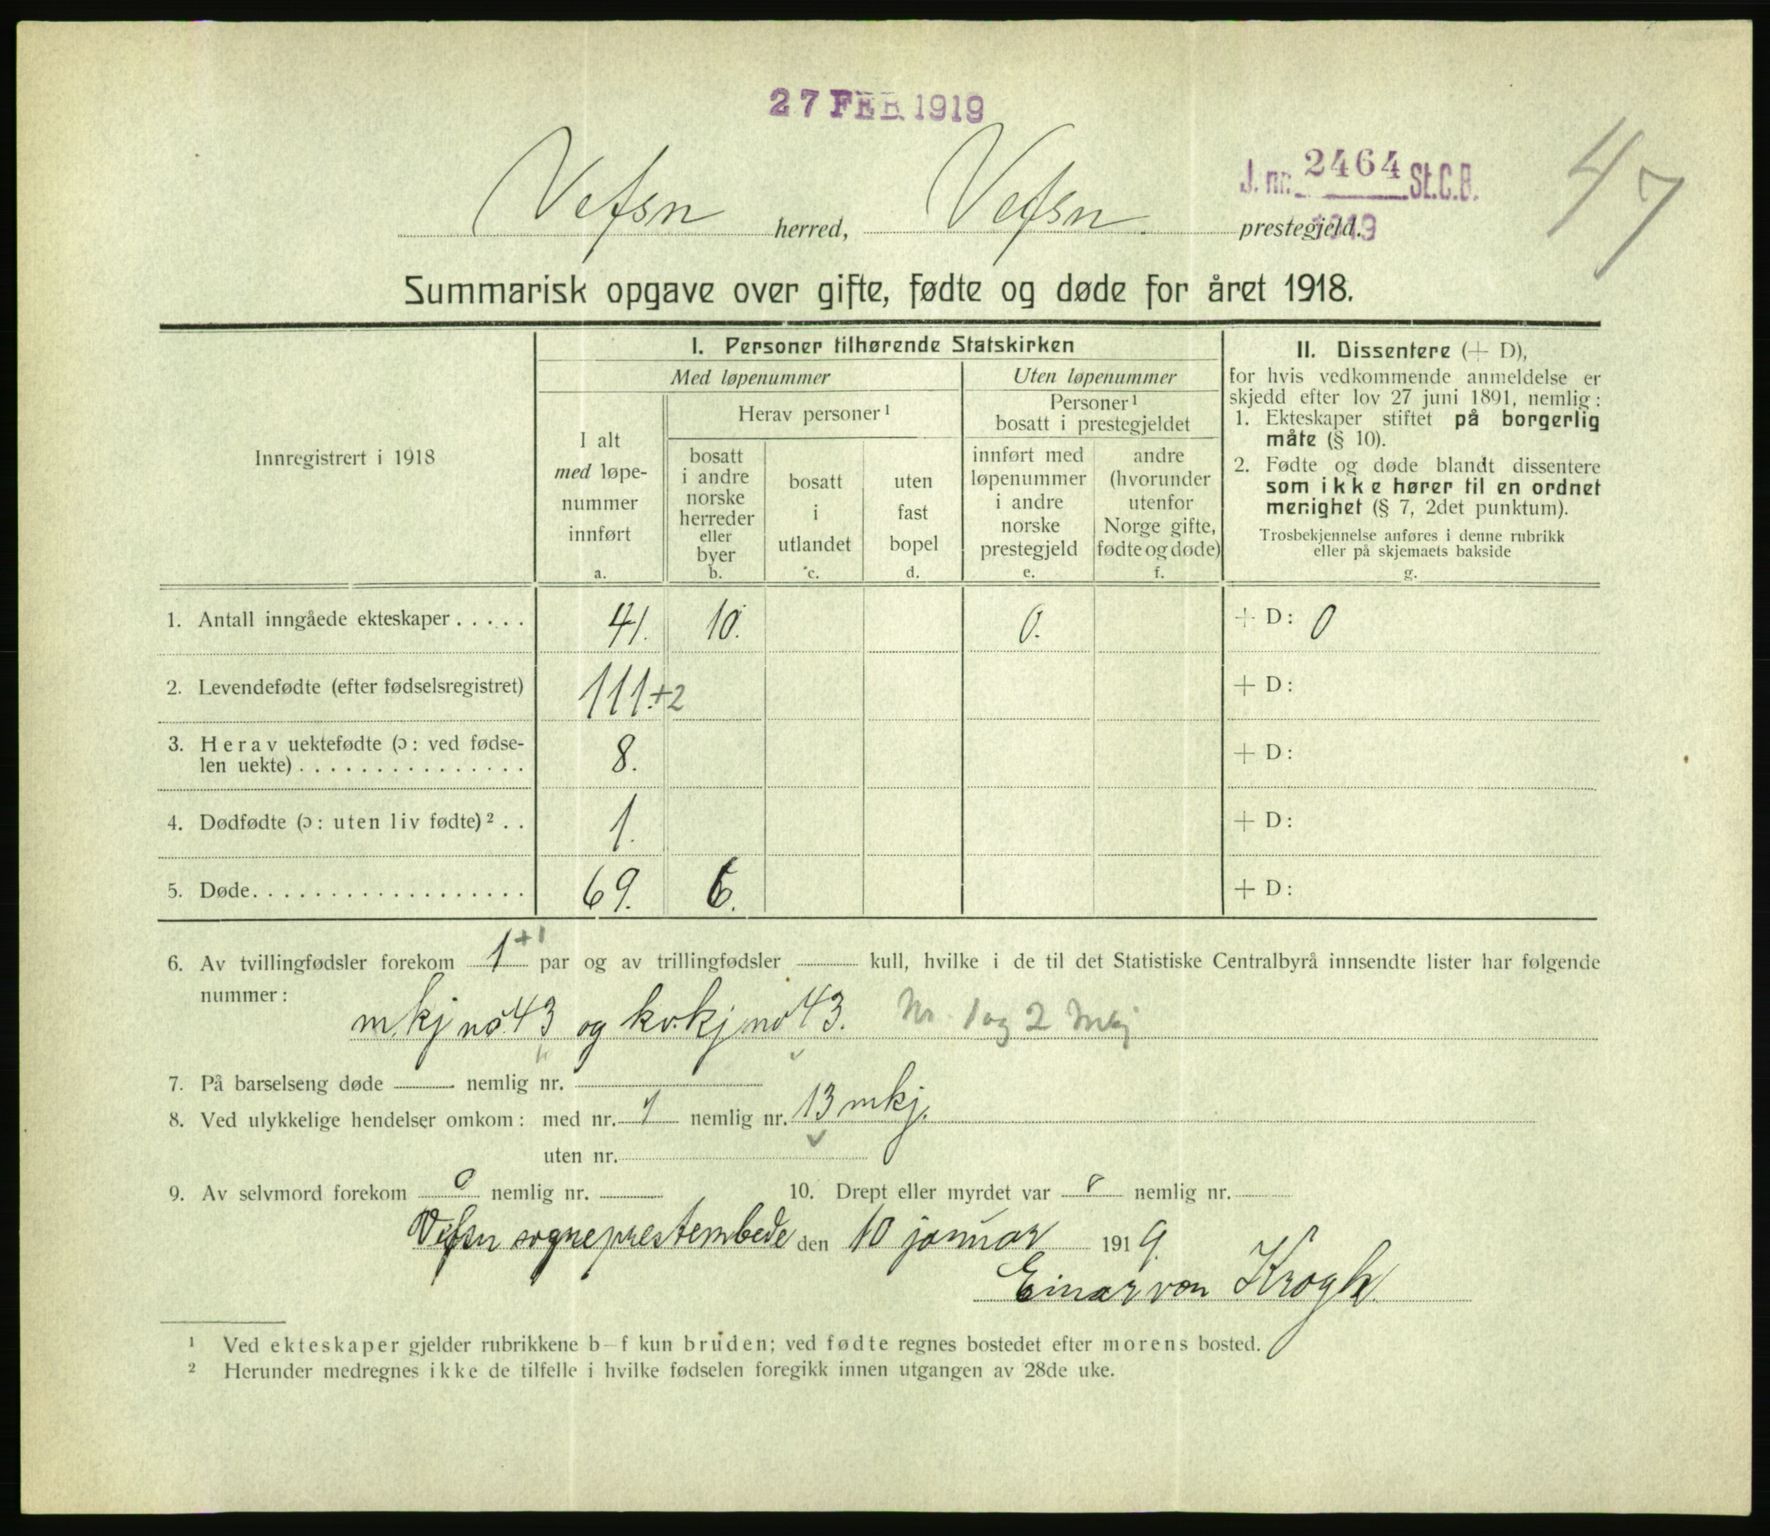 27 FEB. 1919
J. nr. 2464 St.C.B.
1919
47
Vefsn herred, Vefsn prestegjeld.
Summarisk opgave over gifte, fødte og døde for året 1918.
Innregistrert i 1918
I. Personer tilhørende Statskirken
Med løpenummer
Uten løpenummer
I alt
med løpe-
nummer
innført
a.
Herav personer ¹
bosatt
i andre
norske
herreder
eller
byer
b.
bosatt
i
utlandet
c.
uten
fast
bopel
d.
Personer ¹
bosatt i prestegjeldet
innført med
løpenummer
i andre
norske
prestegjeld
e.
andre
(hvorunder
utenfor
Norge gifte,
fødte og døde)
f.
II. Dissentere (+ D),
for hvis vedkommende anmeldelse er
skjedd efter lov 27 juni 1891, nemlig:
1. Ekteskaper stiftet på borgerlig
måte (§ 10).
2. Fødte og døde blandt dissentere
som ikke hører til en ordnet
menighet (§ 7, 2det punktum).
Trosbekjennelse anføres i denne rubrikk
eller på skjemaets bakside
g.
1. Antall inngåede ekteskaper . . . . . 41. 10. 0. + D: 0
2. Levendefødte (efter fødselsregistret) 111.+2 + D:
3. Herav uektefødte (ɔ: ved fødse-
len uekte) . . . . . . . . . . . . . . . 8. + D:
4. Dødfødte (ɔ: uten liv fødte) ² . . 1. + D:
5. Døde. . . . . . . . . . . . . . . . . . 69. 6. + D:
6. Av tvillingfødsler forekom 1 +1 par og av trillingfødsler kull, hvilke i de til det Statistiske Centralbyrå innsendte lister har følgende
nummer:
mkj no 43 og kv.kj no 43. Nr. 1 og 2 Mkj
7. På barselseng døde nemlig nr.
8. Ved ulykkelige hendelser omkom: med nr. 1 nemlig nr. 13 mkj.
uten nr.
9. Av selvmord forekom 0 nemlig nr. 10. Drept eller myrdet var 0 nemlig nr.
Vefsn sogneprestembede den 10 januar 1919.
Einar von Krogh.
¹ Ved ekteskaper gjelder rubrikkene b–f kun bruden; ved fødte regnes bostedet efter morens bosted.
² Herunder medregnes ikke de tilfelle i hvilke fødselen foregikk innen utgangen av 28de uke.